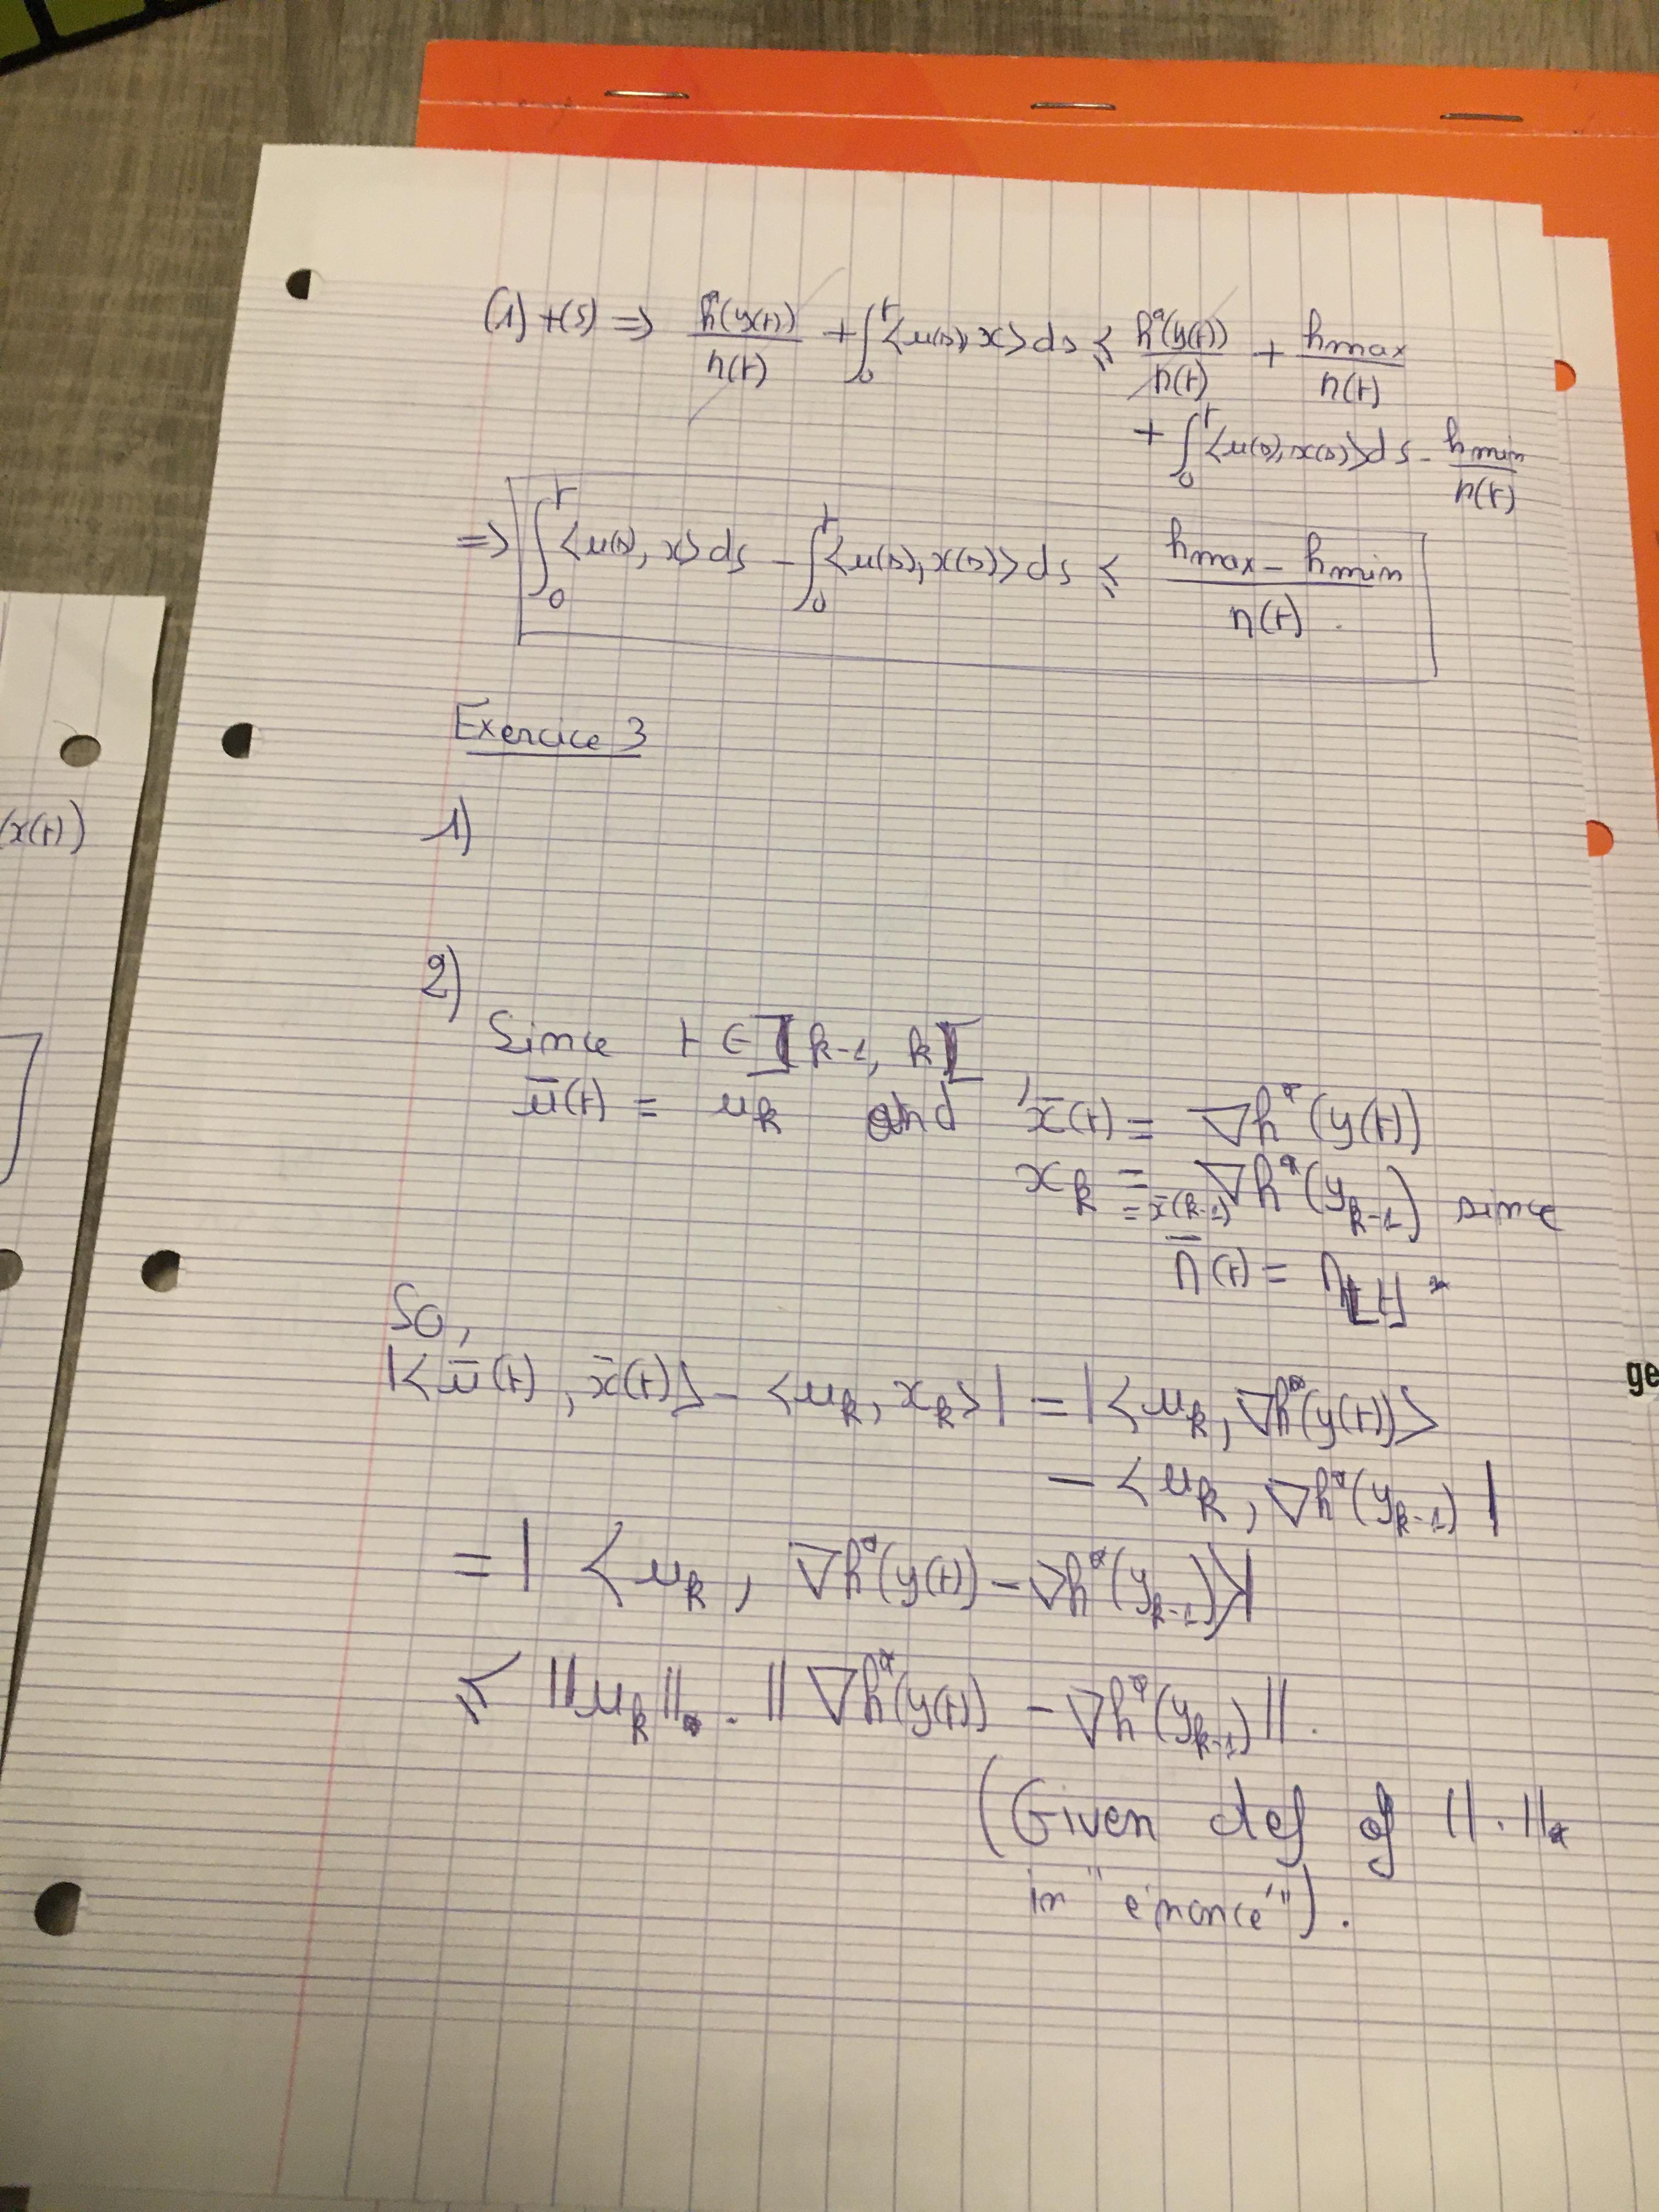 (1) + (5) => h*(y(t)) / η(t) + ∫_0^t <u(s), x> ds ≤ h*(y(t)) / η(t) + hmax / η(t)
+ ∫_0^t <u(s), x(s)> ds - hmin / η(t)
=> ∫_0^t <u(s), x> ds - ∫_0^t <u(s), x(s)> ds ≤ (hmax - hmin) / η(t).
Exercice 3
1)
(x(t))
2)
Since t ∈ ]k-1, k[,
ū(t) = u_k and x̄(t) = ∇h*(y(t))
x_k = ∇h*(y_{k-1}) since
= x̄(k-1)
η̄(t) = η_{⌊t⌋}.
So,
|<ū(t), x̄(t)> - <u_k, x_k>| = |<u_k, ∇h*(y(t))>
- <u_k, ∇h*(y_{k-1}) |
= | <u_k, ∇h*(y(t)) - ∇h*(y_{k-1})>|
≤ ||u_k||_* . || ∇h*(y(t)) - ∇h*(y_{k-1}) ||.
(Given def of ||.||_*
in "énoncé").
ge